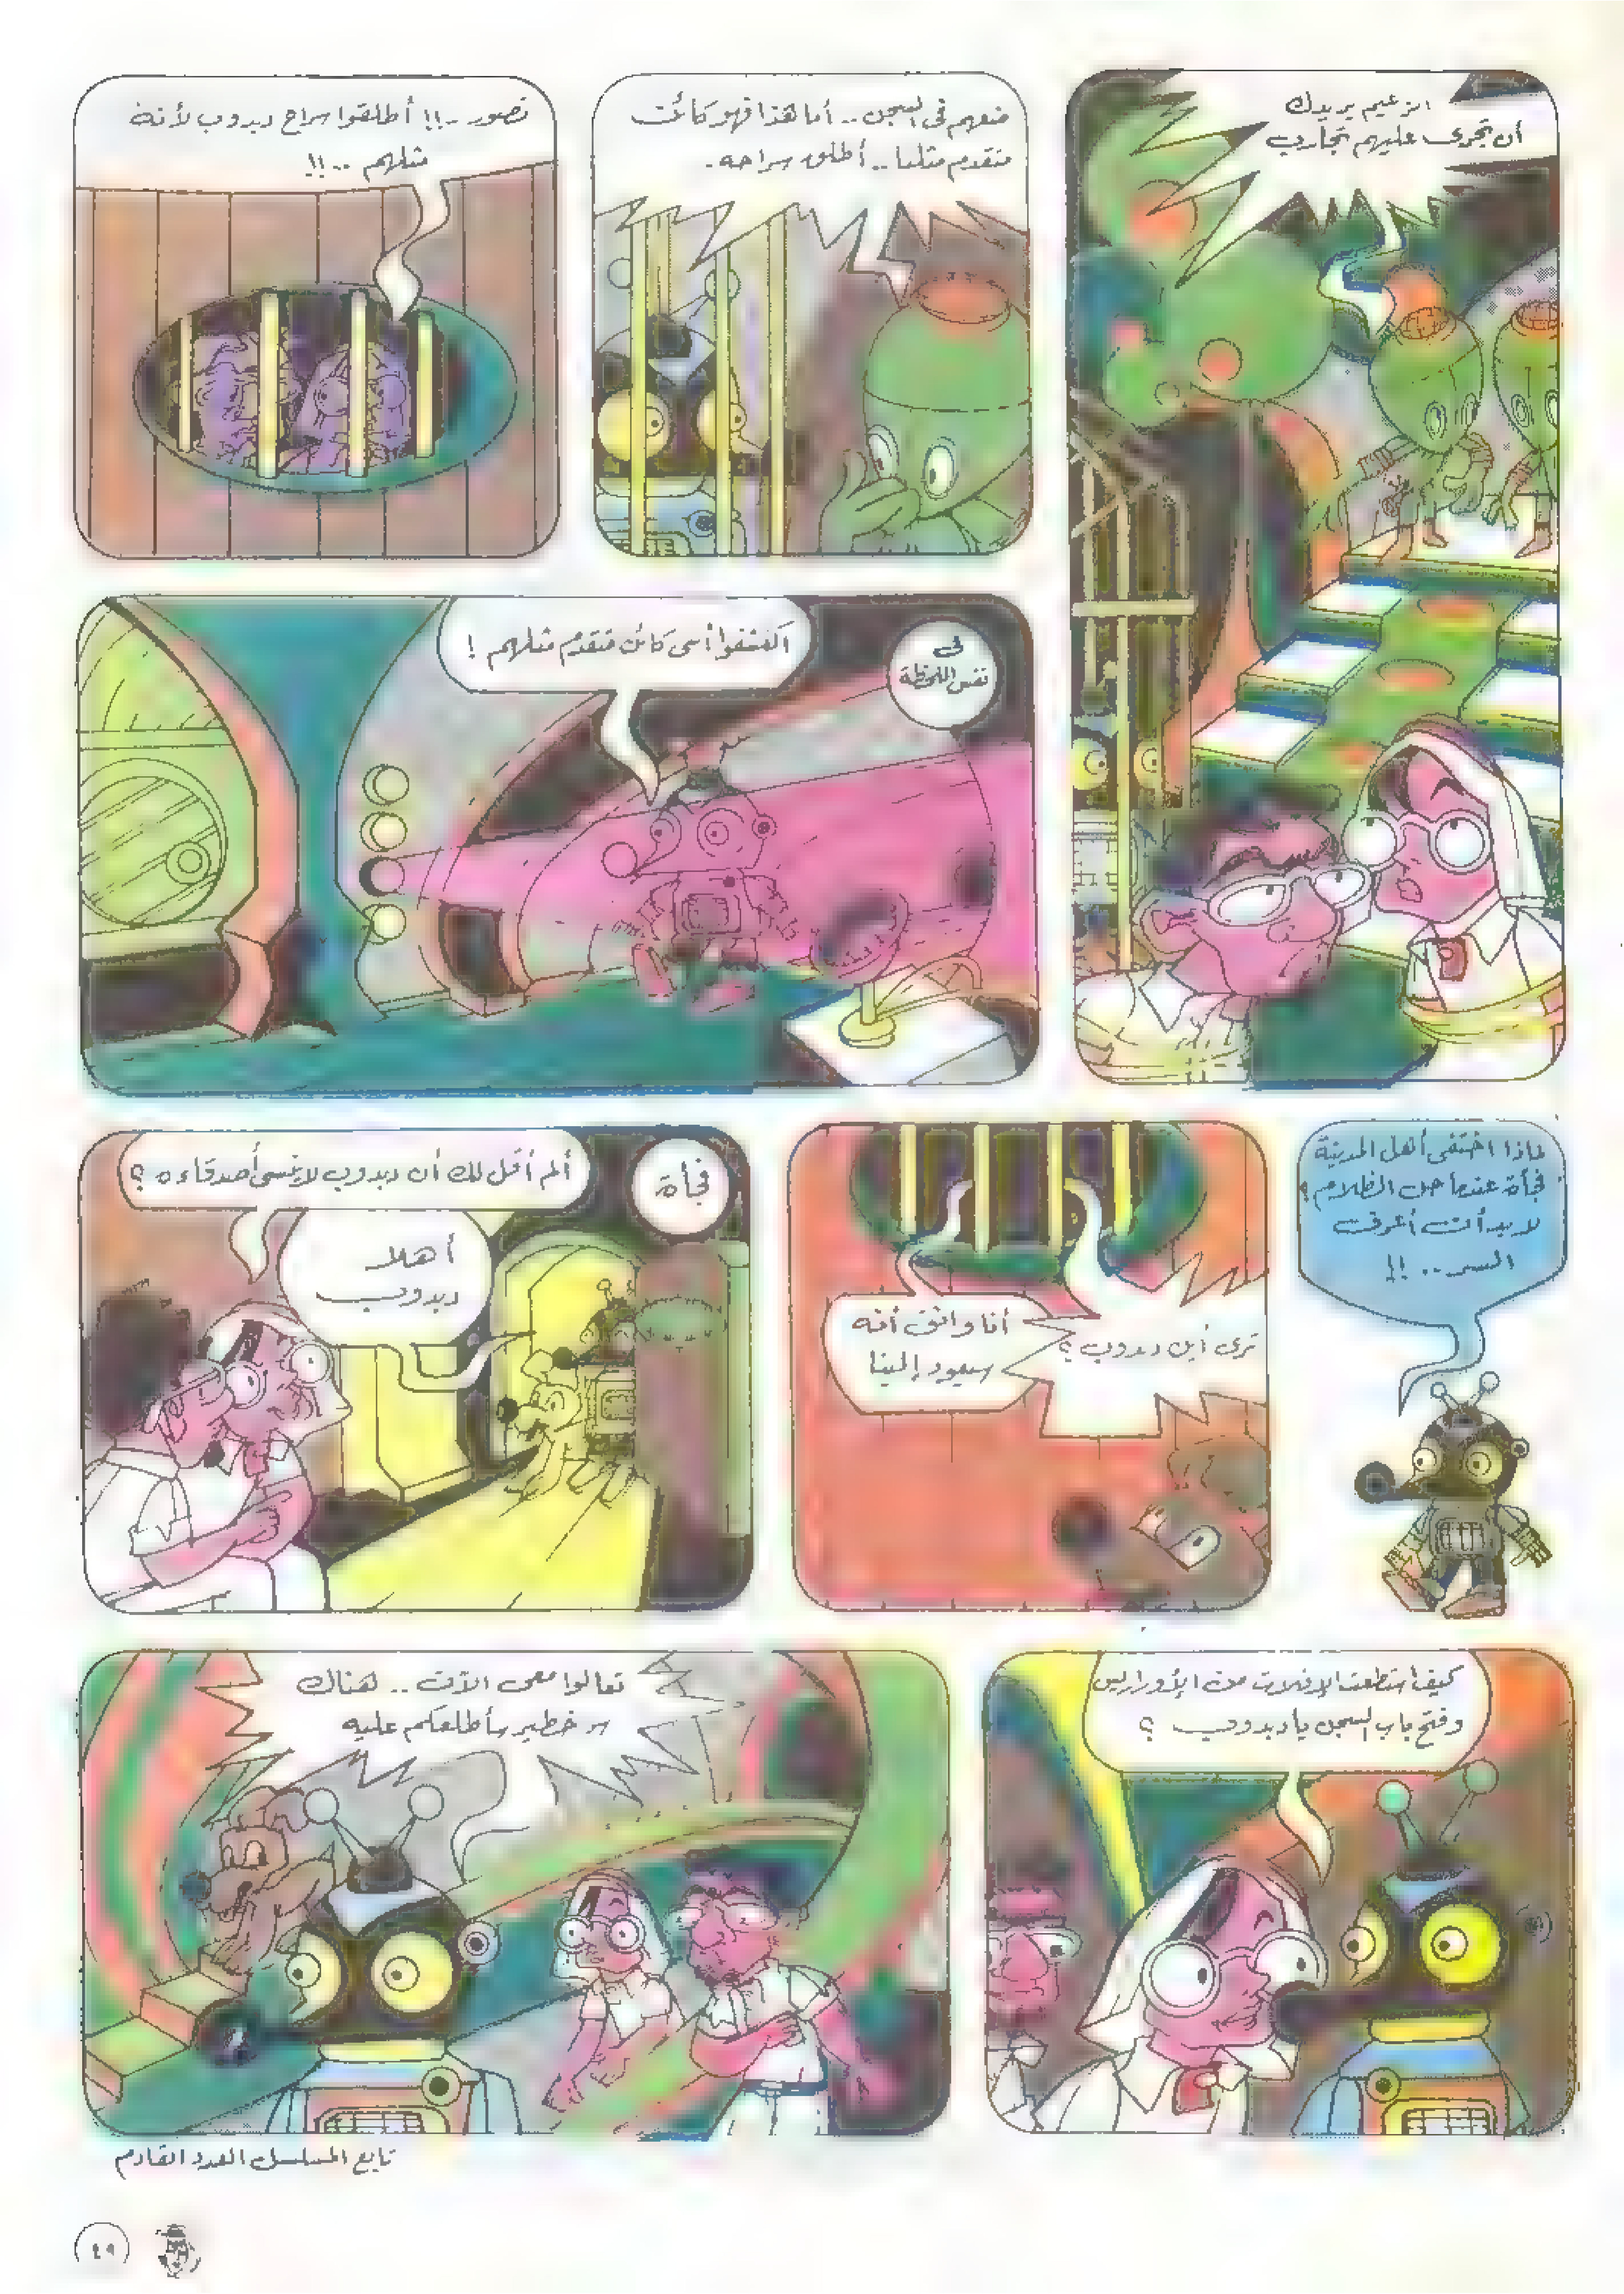 الزعيم يريدك
أن تجرى عليهم تجارب
ضعهم فى السجن .. أما هذا فهو كائن
متقدم مثلنا .. أطلق سراحه .
تصور ..!! أطلقوا سراح دبدوب لأنه
مثلهم ..!!
فى
نفس اللحظة
اكتشفوا أننى كائن متقدم مثلهم !
لماذا اختفى أهل المدينة
فجأة عندما حل الظلام ؟
لابد أن أعرف
السر ..!!
ترى أين دبدوب ؟
أنا واثق أنه
سيعود إلينا
فجأة
ألم أقل لك أن دبدوب لاينسى أصدقاءه ؟
أهلا
دبدوب
كيف استطعت الإفلات من
وفتح باب السجن يا دبدوب ؟
تعالوا معى الآن .. هناك
سر خطير سأطلعكم عليه
تابع المسلسل العدد القادم
٤٩